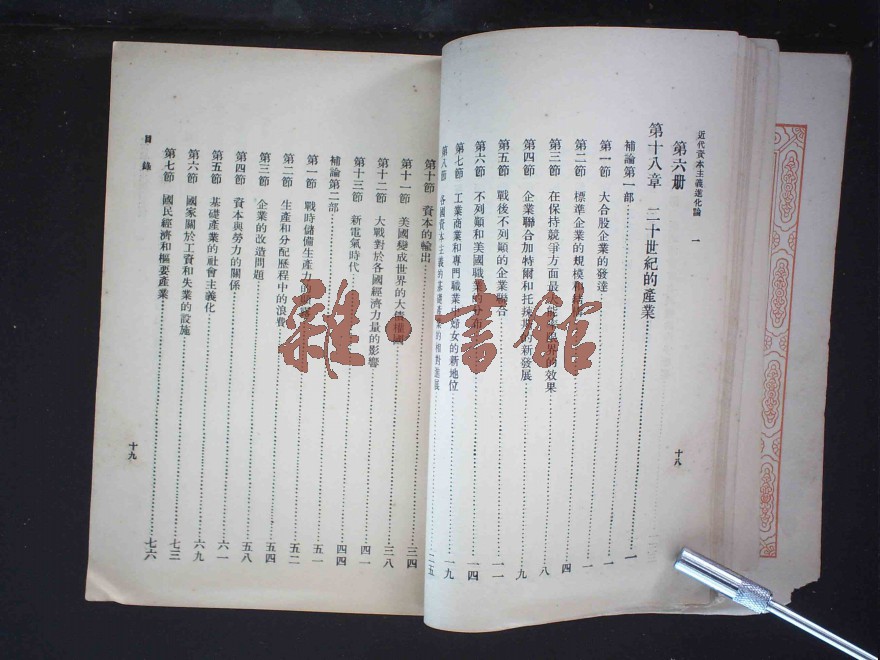 近代資本主義進化論 一
第六册
第十八章 二十世紀的產業 一
補論第一部 一
第一節 大合股企業的發達 一
第二節 標準企業的規模和 四
第三節 在保持競爭方面最大能率 界的效果 八
第四節 企業聯合加特爾和托辣斯的新發展 九
第五節 戰後不列顛的企業聯合 一一
第六節 不列顛和美國職業的分布 一四
第七節 工業商業和專門職業中婦女的新地位 一九
第八節 各國資本主義的基礎產業的相對進展 二五
十八
第十節 資本的輸出 三四
第十一節 美國變成世界的大債權國 三八
第十二節 大戰對於各國經濟力量的影響 四一
第十三節 新電氣時代 四四
補論第二部 四四
第一節 戰時儲備生產力的 五一
第二節 生產和分配歷程中的浪費 五二
第三節 企業的改造問題 五四
第四節 資本與勞力的關係 五八
第五節 基礎產業的社會主義化 六一
第六節 國家關於工資和失業的設施 六九
第七節 國民經濟和樞要產業 七三
七六
目錄
十九
雜·書館